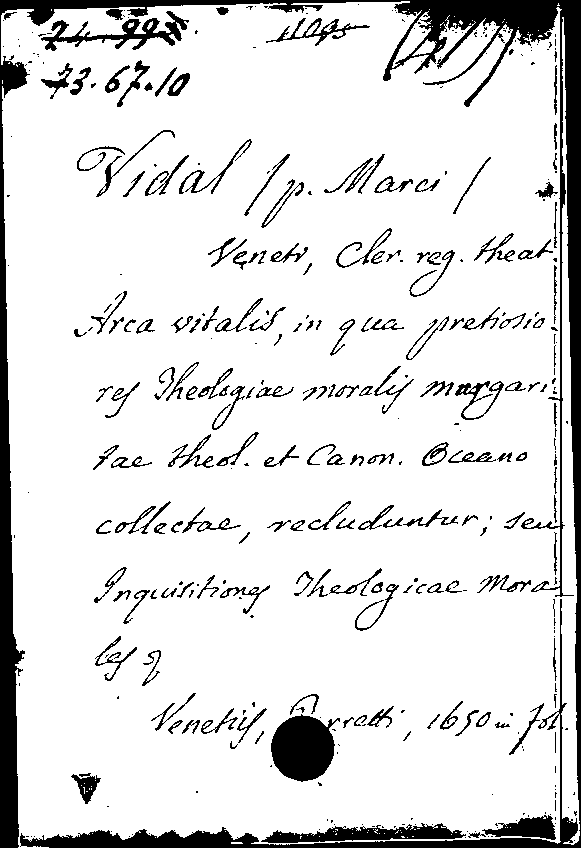 74.99
11095
73.67.10
Vidal / p. Marci /
Veneti, Cler. reg. theat.
Arca vitalis, in qua pretiosio-
res Theologiae moralis margari-
tae theol. et Canon. Oceano
collectae, recluduntur; seu
Inquisitiones Theologicae Mora-
les
Venetiis, 1650 in fol.